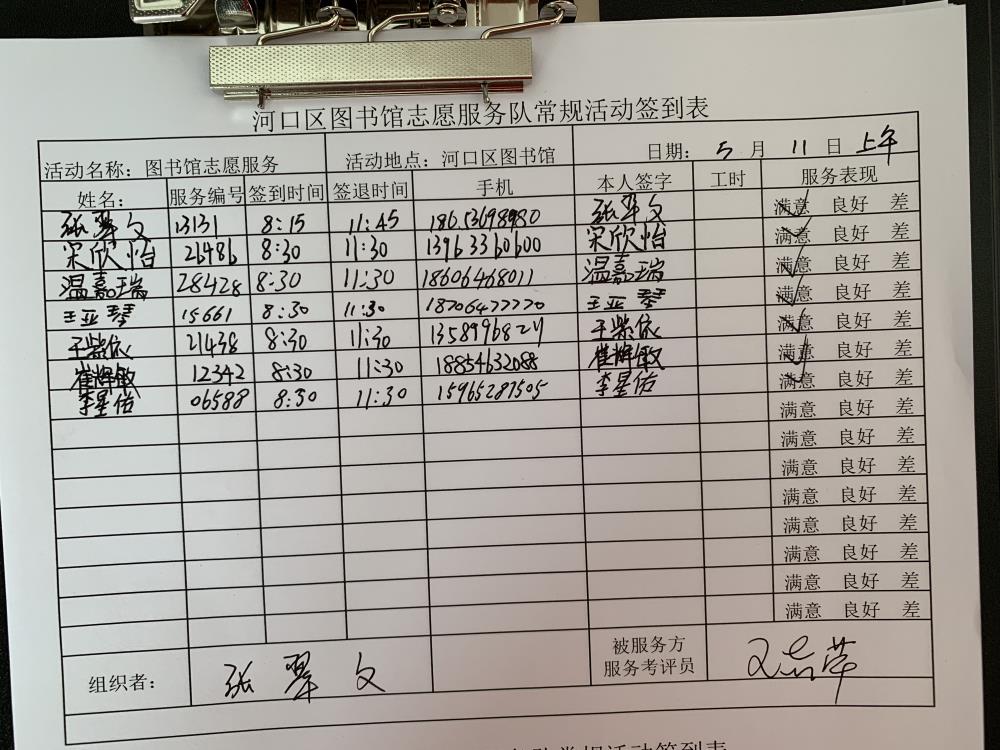 河口区图书馆志愿服务队常规活动签到表
活动名称：图书馆志愿服务 活动地点：河口区图书馆 日期：5月11日上午
姓名： 服务编号 签到时间 签退时间 手机 本人签字 工时 服务表现
张翠文 13131 8:15 11:45 张翠文 满意 良好 差
宋欣怡 21486 8:30 11:30 13963360600 宋欣怡 满意 良好 差
温嘉瑞 28428 8:30 11:30 18606468011 温嘉瑞 满意 良好 差
王亚琴 15661 8:30 11:30 18706477770 王亚琴 满意 良好 差
于紫依 21438 8:30 11:30 于紫依 满意 良好 差
崔辉敏 12342 8:30 11:30 18854632088 崔辉敏 满意 良好 差
李星佑 06588 8:30 11:30 15965287505 李星佑 满意 良好 差
满意 良好 差
满意 良好 差
满意 良好 差
满意 良好 差
满意 良好 差
满意 良好 差
满意 良好 差
满意 良好 差
组织者： 张翠文 被服务方
服务考评员